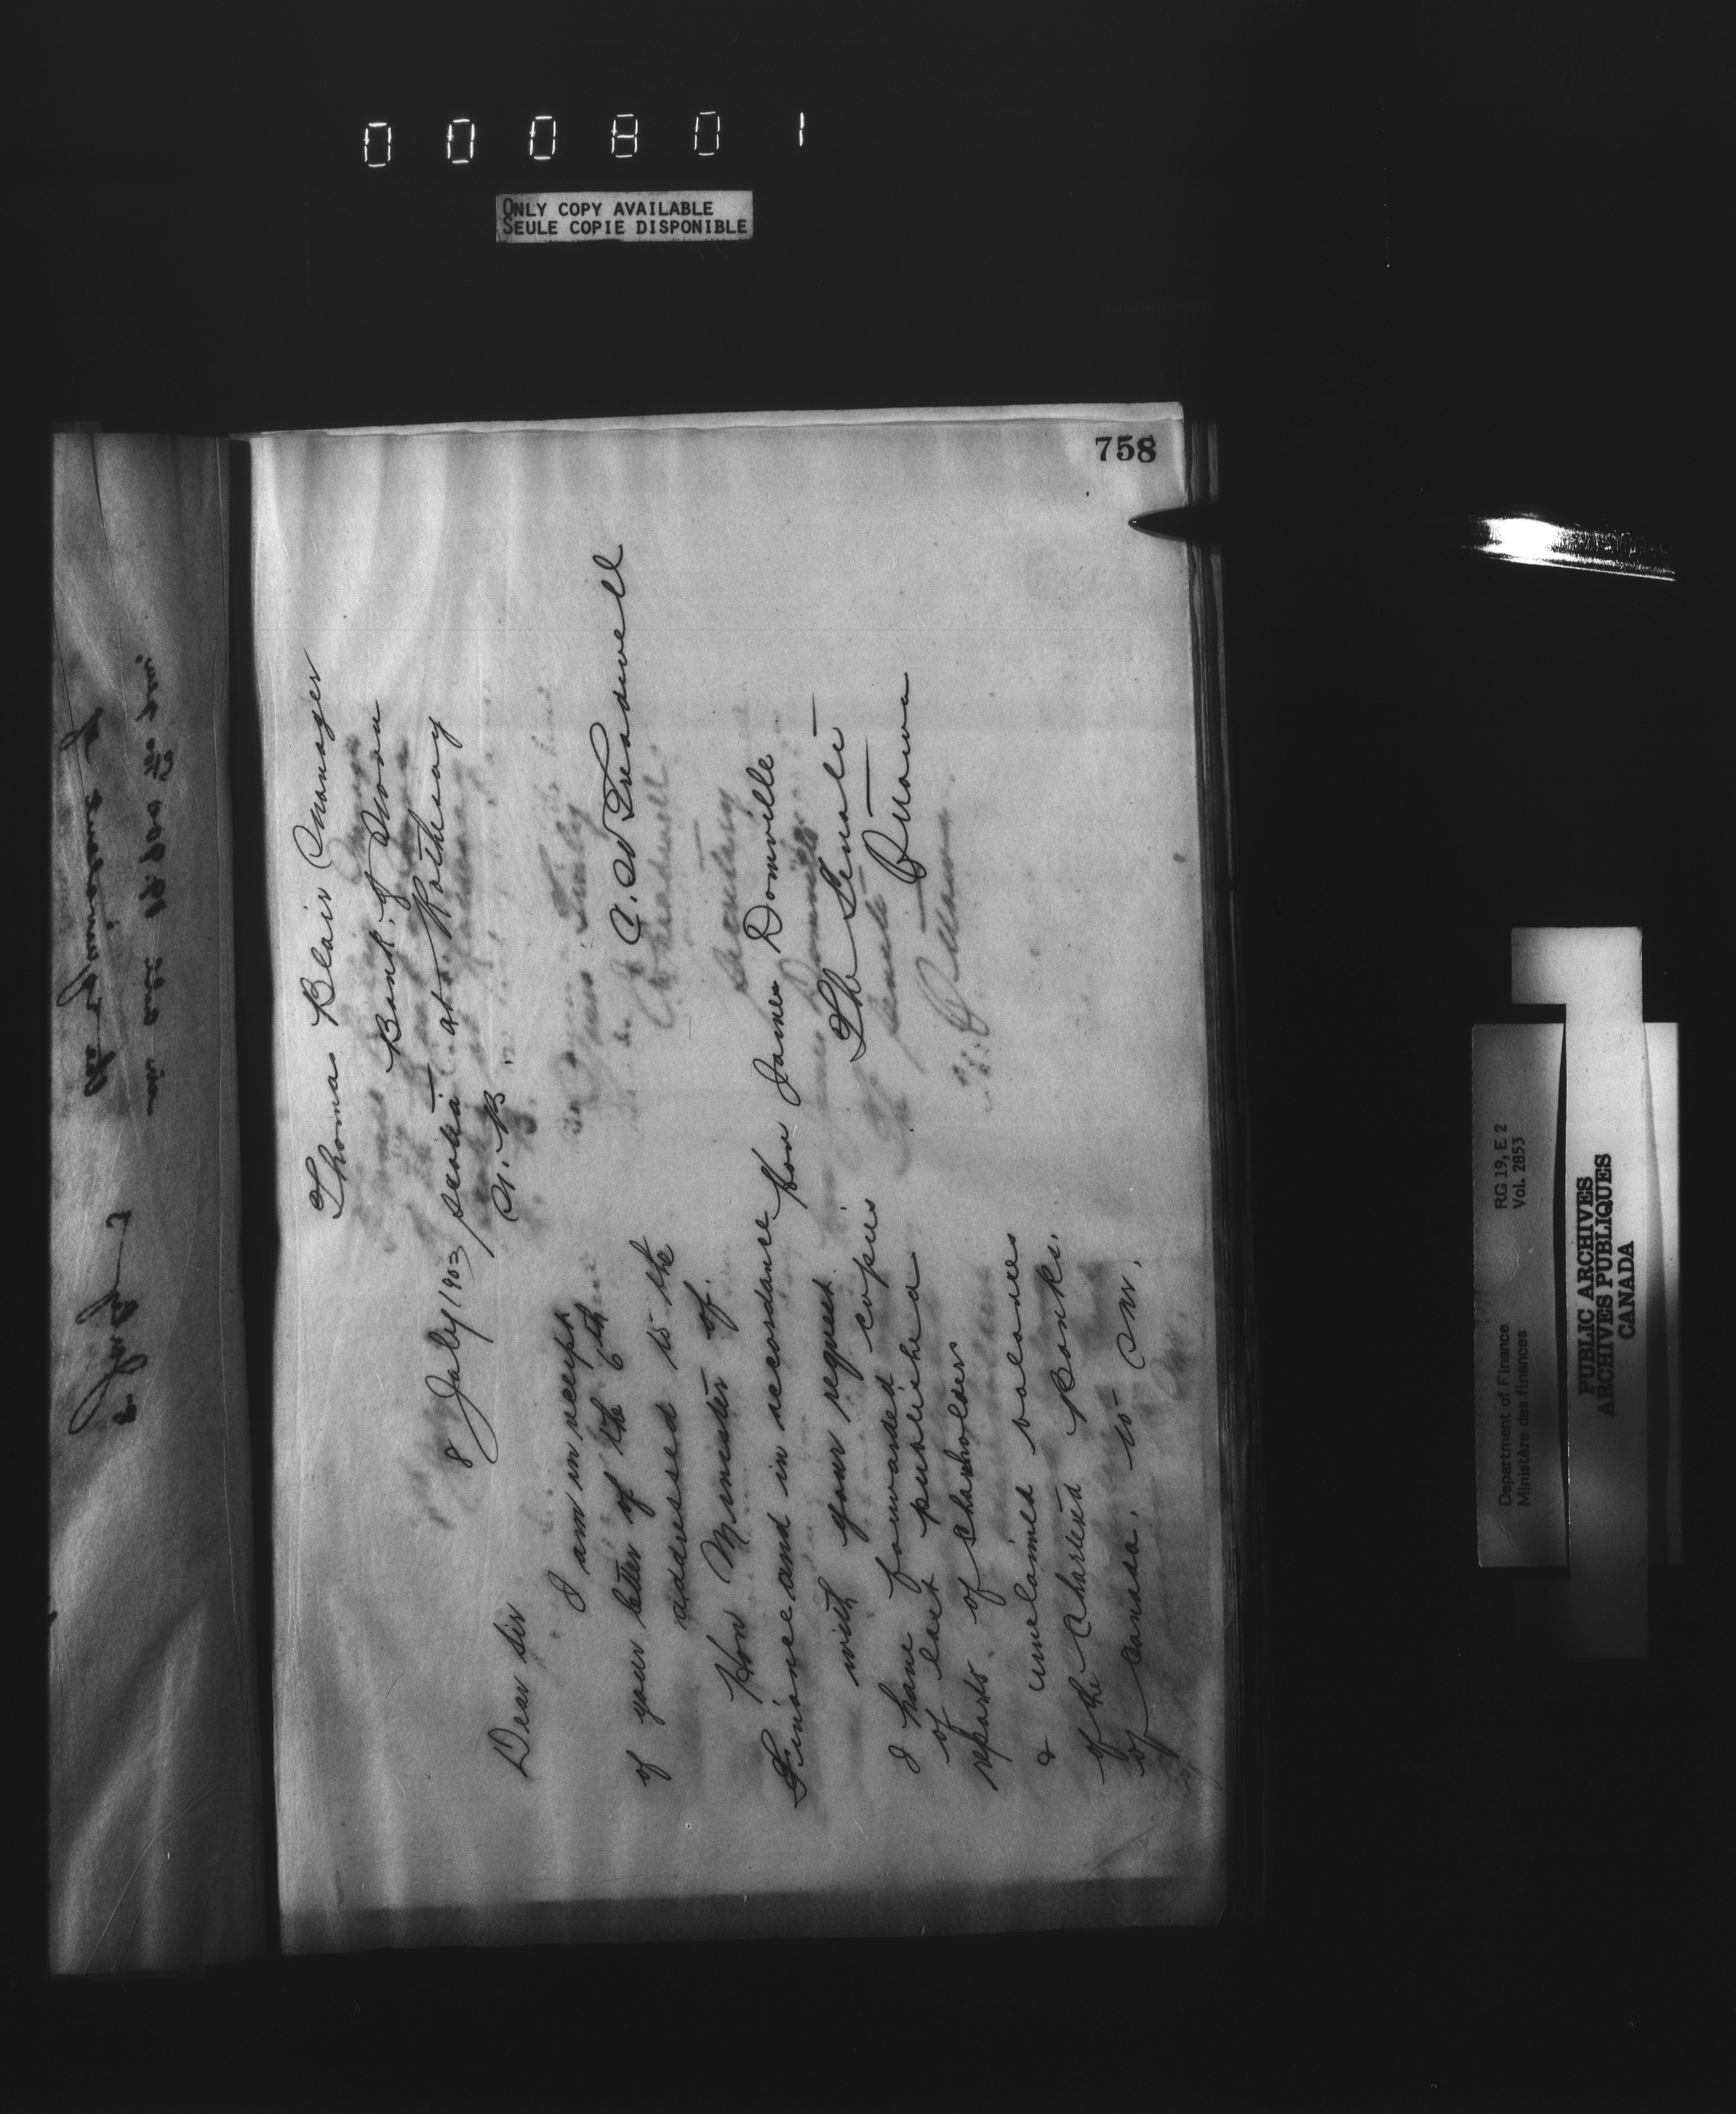 000801
ONLY COPY AVAILABLE
SEULE COPIE DISPONIBLE
758
8 July 1903
Dear Sir
I am in receipt
of your letter of the 6th
addressed to the
Hon Minister of
Finance and in accordance
with your request
I have forwarded copies
of last published
reports of Shareholders
& unclaimed balances
of the Chartered Banks
of Canada, to Mr.
Thomas Blair Manager
Bank of Nova
Scotia at Rothesay
N. B.
C. W Treadwell
Hon James Domville
The Senate
Ottawa
Department of Finance RG 19, E 2
Ministère des finances Vol. 2853
PUBLIC ARCHIVES
ARCHIVES PUBLIQUES
CANADA